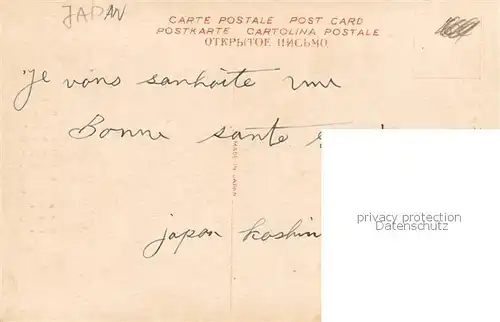 JAPAN
CARTE POSTALE POST CARD
POSTKARTE CARTOLINA POSTALE
ОТКРЫТОЕ ПИСЬМО
Je vous sanhoite une
Bonne sante
MADE IN JAPAN
japan koshin
privacy protection
Datenschutz